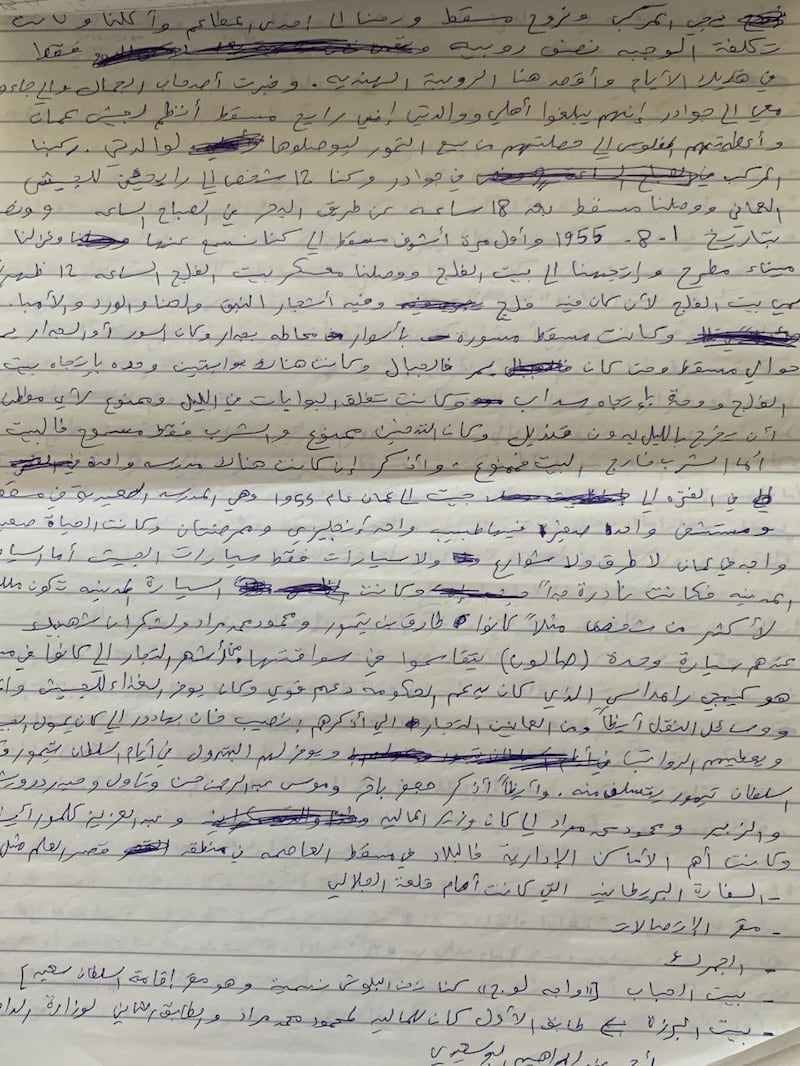 يجي المركب ونروح مسقط ورحنا الى احدى المطاعم وأكلنا وكانت
تكلفة الوجبه نصف روبيه فقط
في هذيك الأيام وأقصد هنا الروبية الهنديه. وخبرت أصحاب الجمال والي جاءو
معي الى جوادر إنهم يبلغوا أهلي ووالدتي إني رايح مسقط أنتظم لجيش عمان
وأعطيتهم الفلوس الي حصلتهم من بيع التمور ليوصلوها لوالدتي. ركبنا
المركب في جوادر وكنا 12 شخص الي رايحين للجيش
العماني ووصلنا مسقط بعد 18 ساعه عن طريق البحر في الصباح الساعه
بتاريخ 1-8-1955 وأول مرة أشوف مسقط الي كنا نسمع عنها ونزلنا
ميناء مطرح وإتجهنا الى بيت الفلج ووصلنا معسكر بيت الفلج الساعه 12 ظهراً
بيت الفلج لأن كان فيه فلج وفيه أشجار النبق والورد والأمبا.
وكانت مسقط مسورة بأسوار محاطه بجدار وكان السور أو الجدار
حوالي مسقط وحتى كان يمر فالجبال وكانت هناك بوابتين وحده بإتجاه بيت
الفلج ووحدة بإتجاه سداب وكانت تغلق البوابات في الليل وممنوع لأي مواطن
أن يخرج بالليل بدون قنديل وكان التدخين ممنوع والشرب فقط مسموح فالبيت
أما الشرب خارج البيت فممنوع. وأذكر إن كانت هناك مدرسه واحدة
في الفتره الي جيت الى عمان عام 1955 وهي المدرسه السعيدية في مسقط
ومستشفى واحد صغير فيها طبيب واحد أنجليزي وممرضتان وكانت الحياة صعبة
في عمان لا طرق ولا شوارع ولا سيارات فقط سيارات الجيش أما السيارات
المدنيه فكانت نادرة جداً وكانت السيارة المدنيه تكون ملك
لأكثر من شخص مثلاً كانوا طارق بن تيمور ومحمود محمد مراد
عندهم سيارة وحدة (صالون) يتقاسموا في سواقتها. من أشهر التجار الي كانوا في
هو كيمجي رامداس الذي كان يدعم الحكومه دعم قوي وكان يوفر الغذاء للجيش
ووسائل النقل أيضاً ومن العمانين التجار الي أذكرهم نصيب خان بهادور الي كان يمول
ويعطيهم الرواتب ويوفر لهم البترول في أيام السلطان تيمور
السلطان تيمور يتسلف منه. وأيضاً أذكر جعفر باقر وموسى عبدالرحمن حسن وحيدر درويش
والزبير ومحمود محمد مراد الي كان وزير الماليه وعبدالعزيز
وكانت أهم الأماكن الإدارية فالبلاد في مسقط العاصمه في منطقة قصر العلم مثل
- السفارة البريطانيه التي كانت أمام قلعة الجلالي
- مقر الإتصالات
- الجمرك
- بيت الحباب كنا نحن البلوش نسميه وهو مقر إقامة السلطان سعيد]
- بيت البرزة طابق الأول كان للماليه لمحمود محمد مراد والطابق الثاني لوزارة